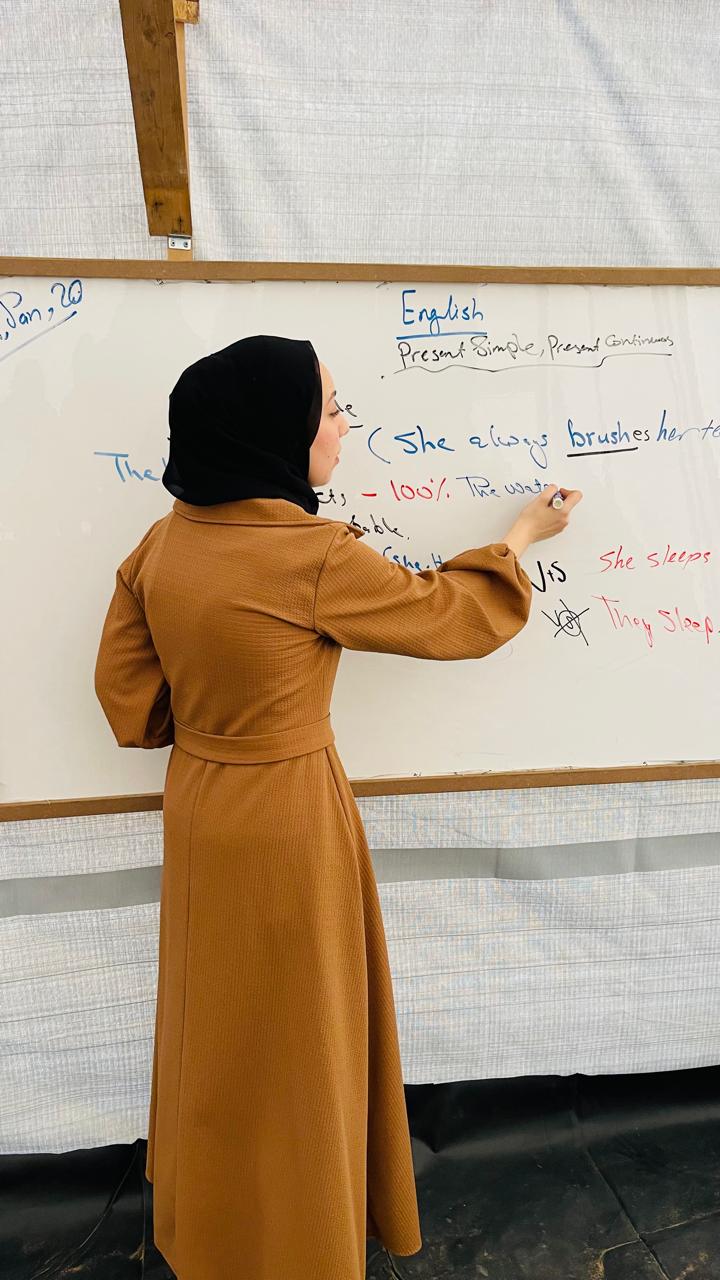 Jan, 20
English
Present Simple, Present Continuous
(She always brushes her te
The
cts, - 100% The wate
able.
(she, H
V+S She sleeps
They sleep.